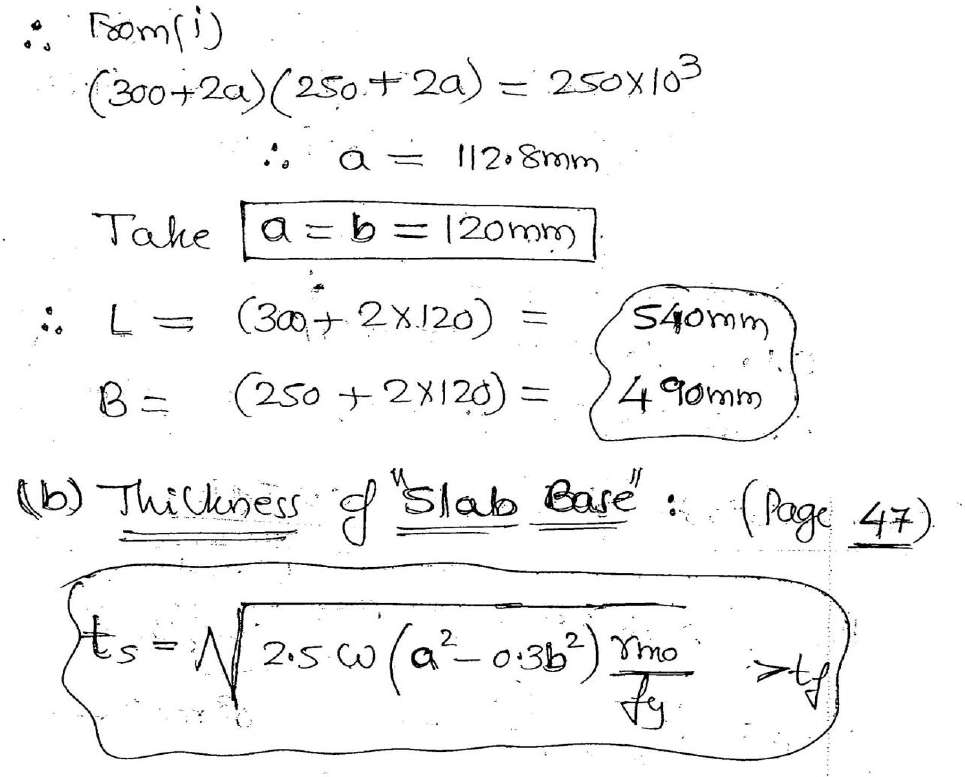 ∴ From(i)
(300+2a)(250+2a) = 250×10³
∴ a = 112.8mm
Take a = b = 120mm
∴ L = (300 + 2×120) = 540mm
B = (250 + 2×120) = 490mm
(b) Thickness of "Slab Base" : (Page 47)
ts = √2.5 ω (a² – 0.3b²) γmo/fy > tf